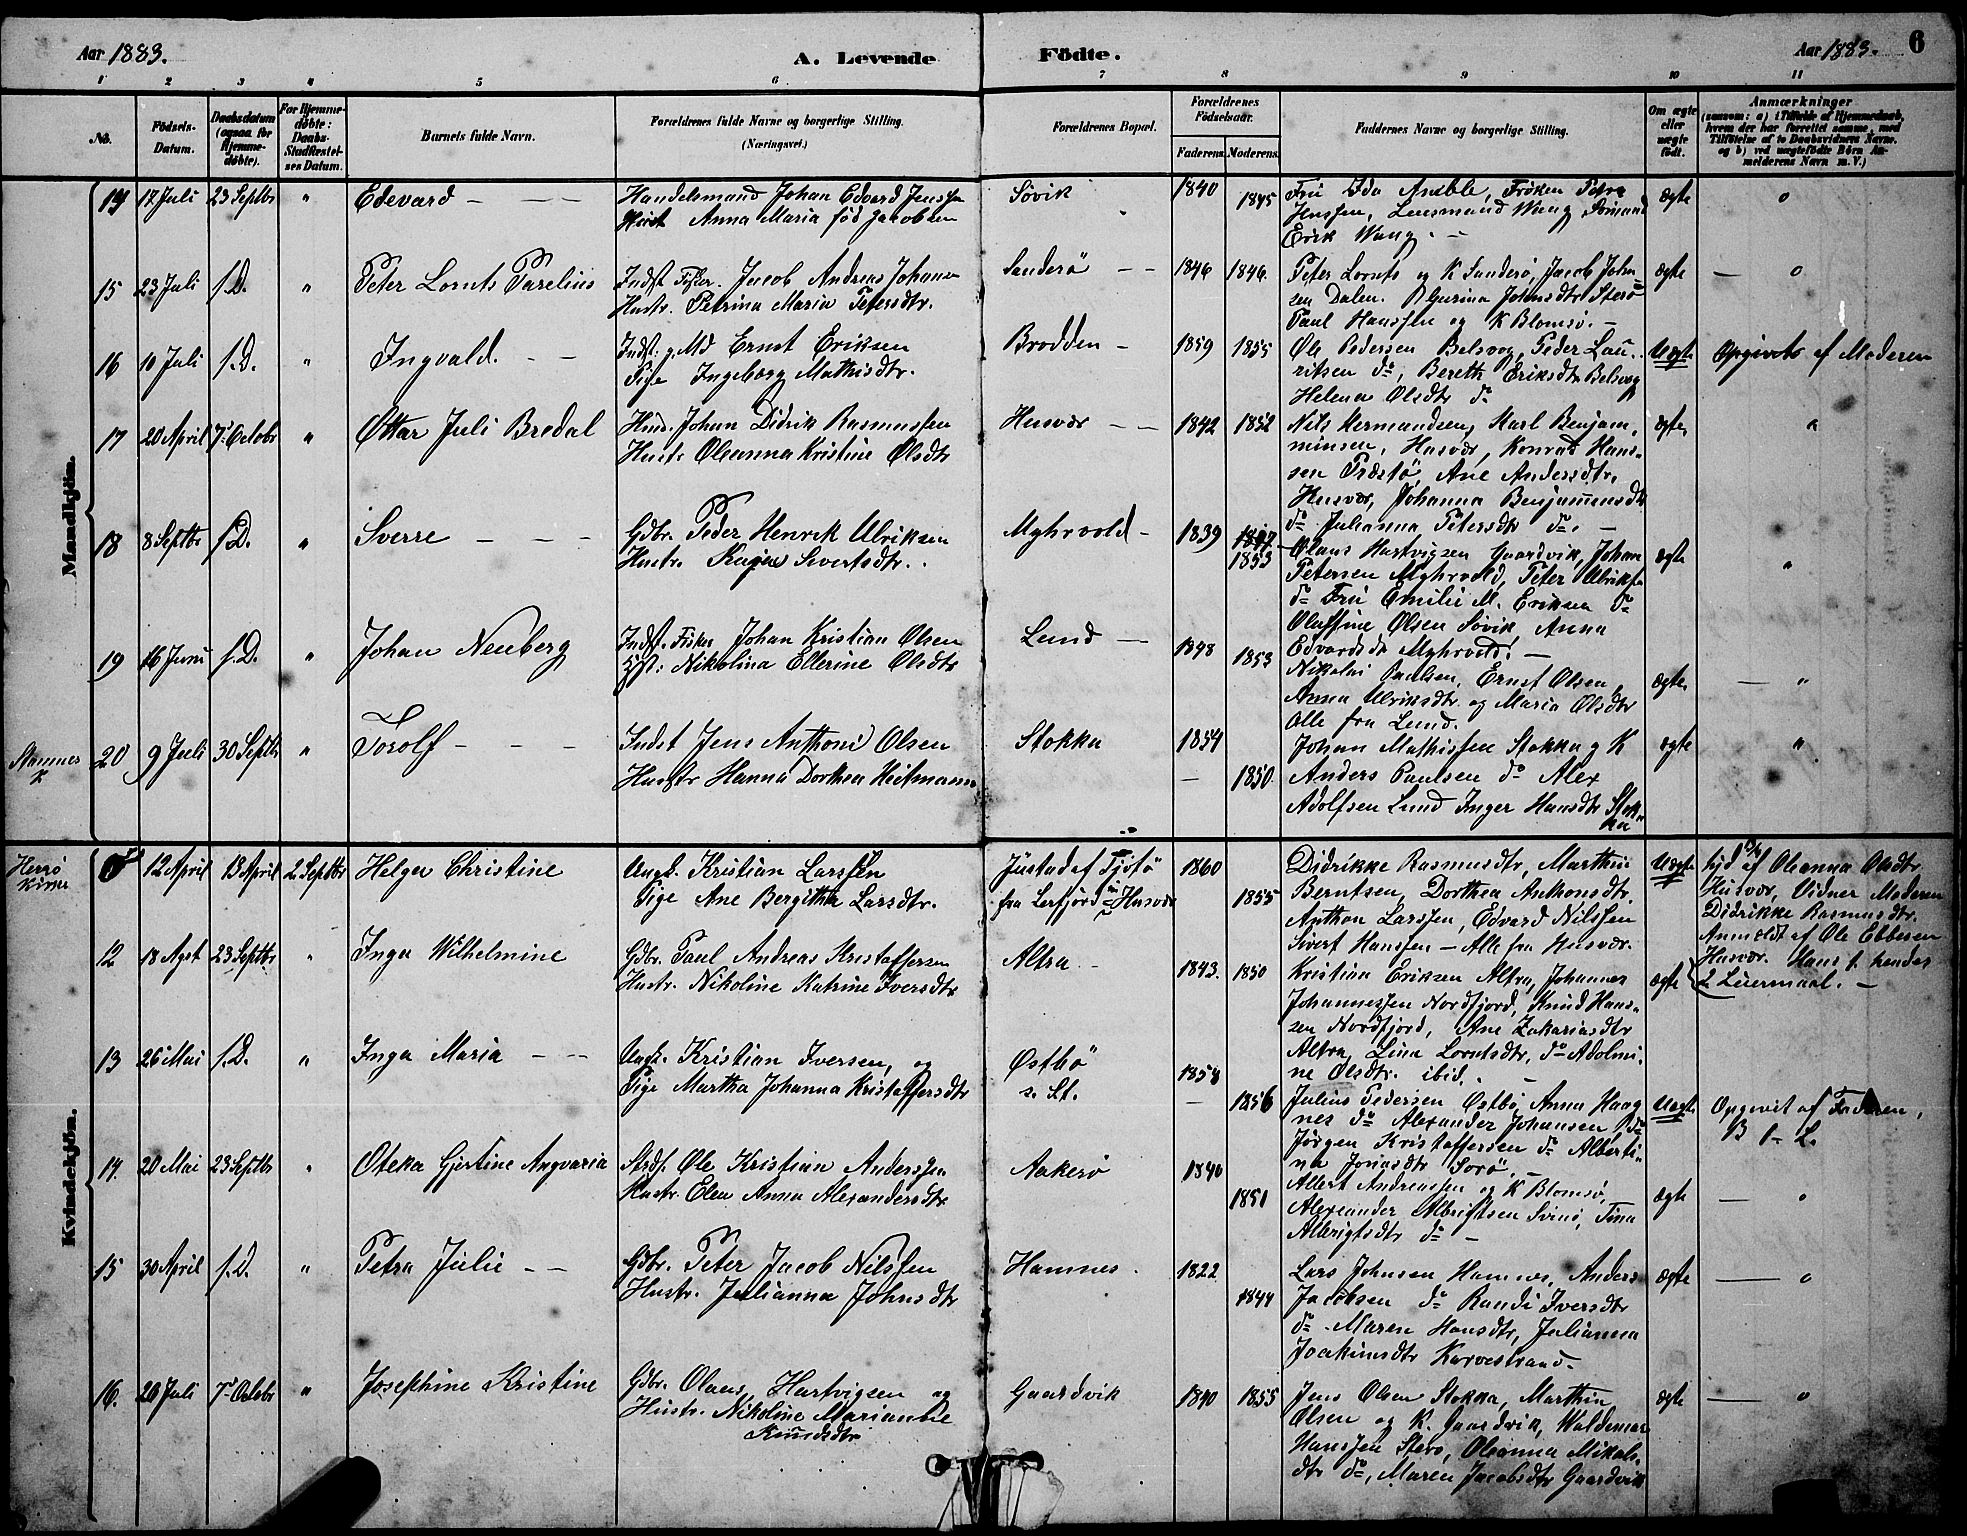 Aar 1883.
A. Levende
Födte.
Aar 1883.
6
1 2 3 4 5 6 7 8 9 10 11
No.
Födsels-
Datum.
Daabsdatum
(ogsaa for
Hjemme-
döbte).
For Hjemme-
döbte:
Daabs-
Stadfæstel-
ses Datum.
Barnets fulde Navn.
Forældrenes fulde Navne og borgerlige Stilling.
(Næringsvei.)
Forældrenes Bopæl.
Forældrenes
Födselsaar.
Faderens.
Moderens.
Faddernes Navne og borgerlige Stilling.
Om ægte
eller
uægte
født.
Anmærkninger
(saasom: a) i Tilfælde af Hjemmedaab,
hvem der har forrettet samme, med
Tilföielse af to Daabsvidners Navne,
og b) ved uægtefödte Börn An-
melderens Navn m. V.)
Mandkjön.
14 17 Juli 23 Septbr " Edevard - - -
Handelsmand Johan Edvard Jenssen
Hust Anna Maria fød Jakobsen
Søvik
1840 1845
Fru Ida Ansble, Frøken Petra
Jenssen, Lensmand Wang,
Erik Wang. -
ægte
15 23 Juli s.D. " Peter Lornts Parelius
Indst Fisker. Jacob Andreas Johans
Hustr. Petrina Maria Petersdtr.
Sanderø - -
1846 1846.
Peter Lornts og K Sanderø, Jacob Johan-
sen Dalen. Gurina Johnsdtr Sterø
Paul Hanssen og K Blomsø. -
ægte
16 10 Juli s.D. " Ingvald. - -
Indst. Ernst Eriksen
Pige Ingeborg Mathisdtr.
Brodden -
1859 1855
Ole Pedersen Belsvog, Peder Lau-
ritsen do, Bereth Eriksdtr Belsvog
Helena Olsdtr do
Uægte
Opgivet af Moderen
17 20 April 7de Octobr " Ottar Juli Bredal
Johan Didrik Rasmussen
Hustr Oleanna Kristine Olsdtr
Husvær - -
1842 1852
Nils Hermandsen, Karl Benjam-
minsen, Husvær, Konrad Hans-
sen Prestø, Ane Andersdtr,
Husvær, Johanna Benjaminsdtr
do Julianna Petersdtr do. -
ægte
18 8 Septbr s.D. " Sverre - - -
Gdbr. Peder Henrik Ulriksen
Hustr. Sivertsdtr.
Myhrvold -
1839 1853
Olaus Hartvigsen Gaardvik, Johan
Petersen Myhrvold, Peter Ulriks
do Fru Emilie M. Eriksen do
Oluffine Olsen Søvik Anna
Edvardsdtr Myhrvold! -
ægte
19 16 Juni s.D. " Johan Neuberg
Indst. Fisker Johan Kristian Olsen
Hst: Nikolina Ellerine Olsdtr
Lund -
1848 1853
Nikolai Paulsen, Ernst Olsen,
Anna Ulriksdtr. og Maria Olsdtr
Alle fra Lund.
ægte.
Stamnes
K
20 9 Juli 30 Septbr " Torolf - - -
Indst Jens Anthoni Olsen
Hustr Hanna Dorthea Heitmann
Stokka
1854 1850
Johan Mathissen Stokka g K
Anders Paulsen do Alex
Adolfsen Lund Inger Hansdtr Stok-
ka
ægte
Kvindekjön.
Herrø
Kirke
12 April 13 April 2 Septbr Helga Christine
Ungk. Kristian Larssen
Pige Ane Bergitha Larsdtr.
Justad af Tjøtø
fra Leifjord Husvær
1860 1855
Didrikke Rasmusdtr, Marthin
Berntsen, Dorthea Anthonsdtr.
Anthon Larssen, Edvard Nilssen
Sivert Hanssen - Alle fra Husvær.
Uægte
hjd af Oleanna Olsdtr
Husvær, Vidner Moderen
Didrikke Rasmusdtr.
Anmeldt af Ole Ebbesen
Husvær. Hans 1. hendes
2 Leiermaal. -
12 18 Agst 23 Septbr " Inga Wilhelmine
Gdbr. Paul Andreas Kristoffersen
Hustr. Nikoline Katrine Iversdtr
Altra -
1843. 1850
Kristian Eriksen Altra, Johannes
Johannessen Nordfjord, Knud Hans-
sen Nordfjord, Ane Zakariasdtr
Altra, Lina Lorntsdtr, do Adolmi-
ne Olsdtr. ibid. -
ægte
13 26 Mai s.D. " Inga Maria - -
Ungk. Kristian Iversen, og
Pige Martha Johanna Kristoffersdtr
Østbø
s. St.
1858 1856
Julius Pedersen Østbø, Anna Haag
nes do Alexander Johansen, do
Jørgen Kristoffersen do Alberti-
na Jonasdtr Sorø. -
Uægte
Opgevit af Faderen.
B 1 - L.
14. 20 Mai 23 Septbr " Oleka Gjertine Angvaria
Strds. Ole Kristian Anderssen
Hustr. Elen Anna Alexandersdtr
Aakerø
1840 1851
Albert Andreassen og K Blomsø,
Alexander Albrigtsen Svinø, Tina
Albrigtsdtr do -
ægte
15 30 April s.D. " Petra Julie - -
Gdbr. Peter Jacob Nilssen
Hustr. Julianna Johnsdtr
Hamnes.
1822 1844
Lars Johnsen Hamnes, Anders
Jacobsen do Randi Iversdtr
do. Maren Hansdtr, Julianna
Joakimsdtr Karvestrand.
ægte
16. 20 Juli 7de Octobr " Josephine Kristine
Gdbr. Olaus Hartvigsen og
Hustr. Nikoline Marianne
Knudsdtr
Gaardvik
1840 1855
Jens Olsen Stokka, Marthin
Olsen og K. Gaardvik, Waldemar
Hanssen Sterø, Oleanna Mikals-
dtr do, Maren Jacobsdtr Gaardvik
ægte